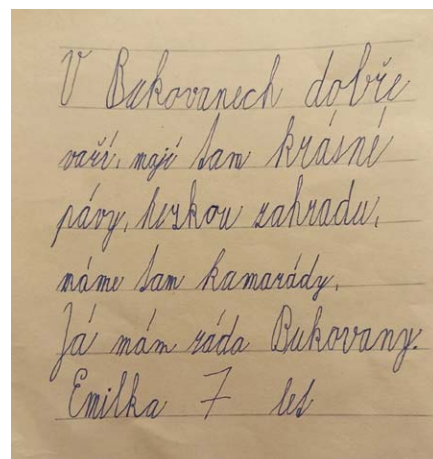 V Bukovanech dobře
vaří, mají tam krásné
pávy, hezkou zahradu,
máme tam kamarády.
Já mám ráda Bukovany.
Emilka 7 let